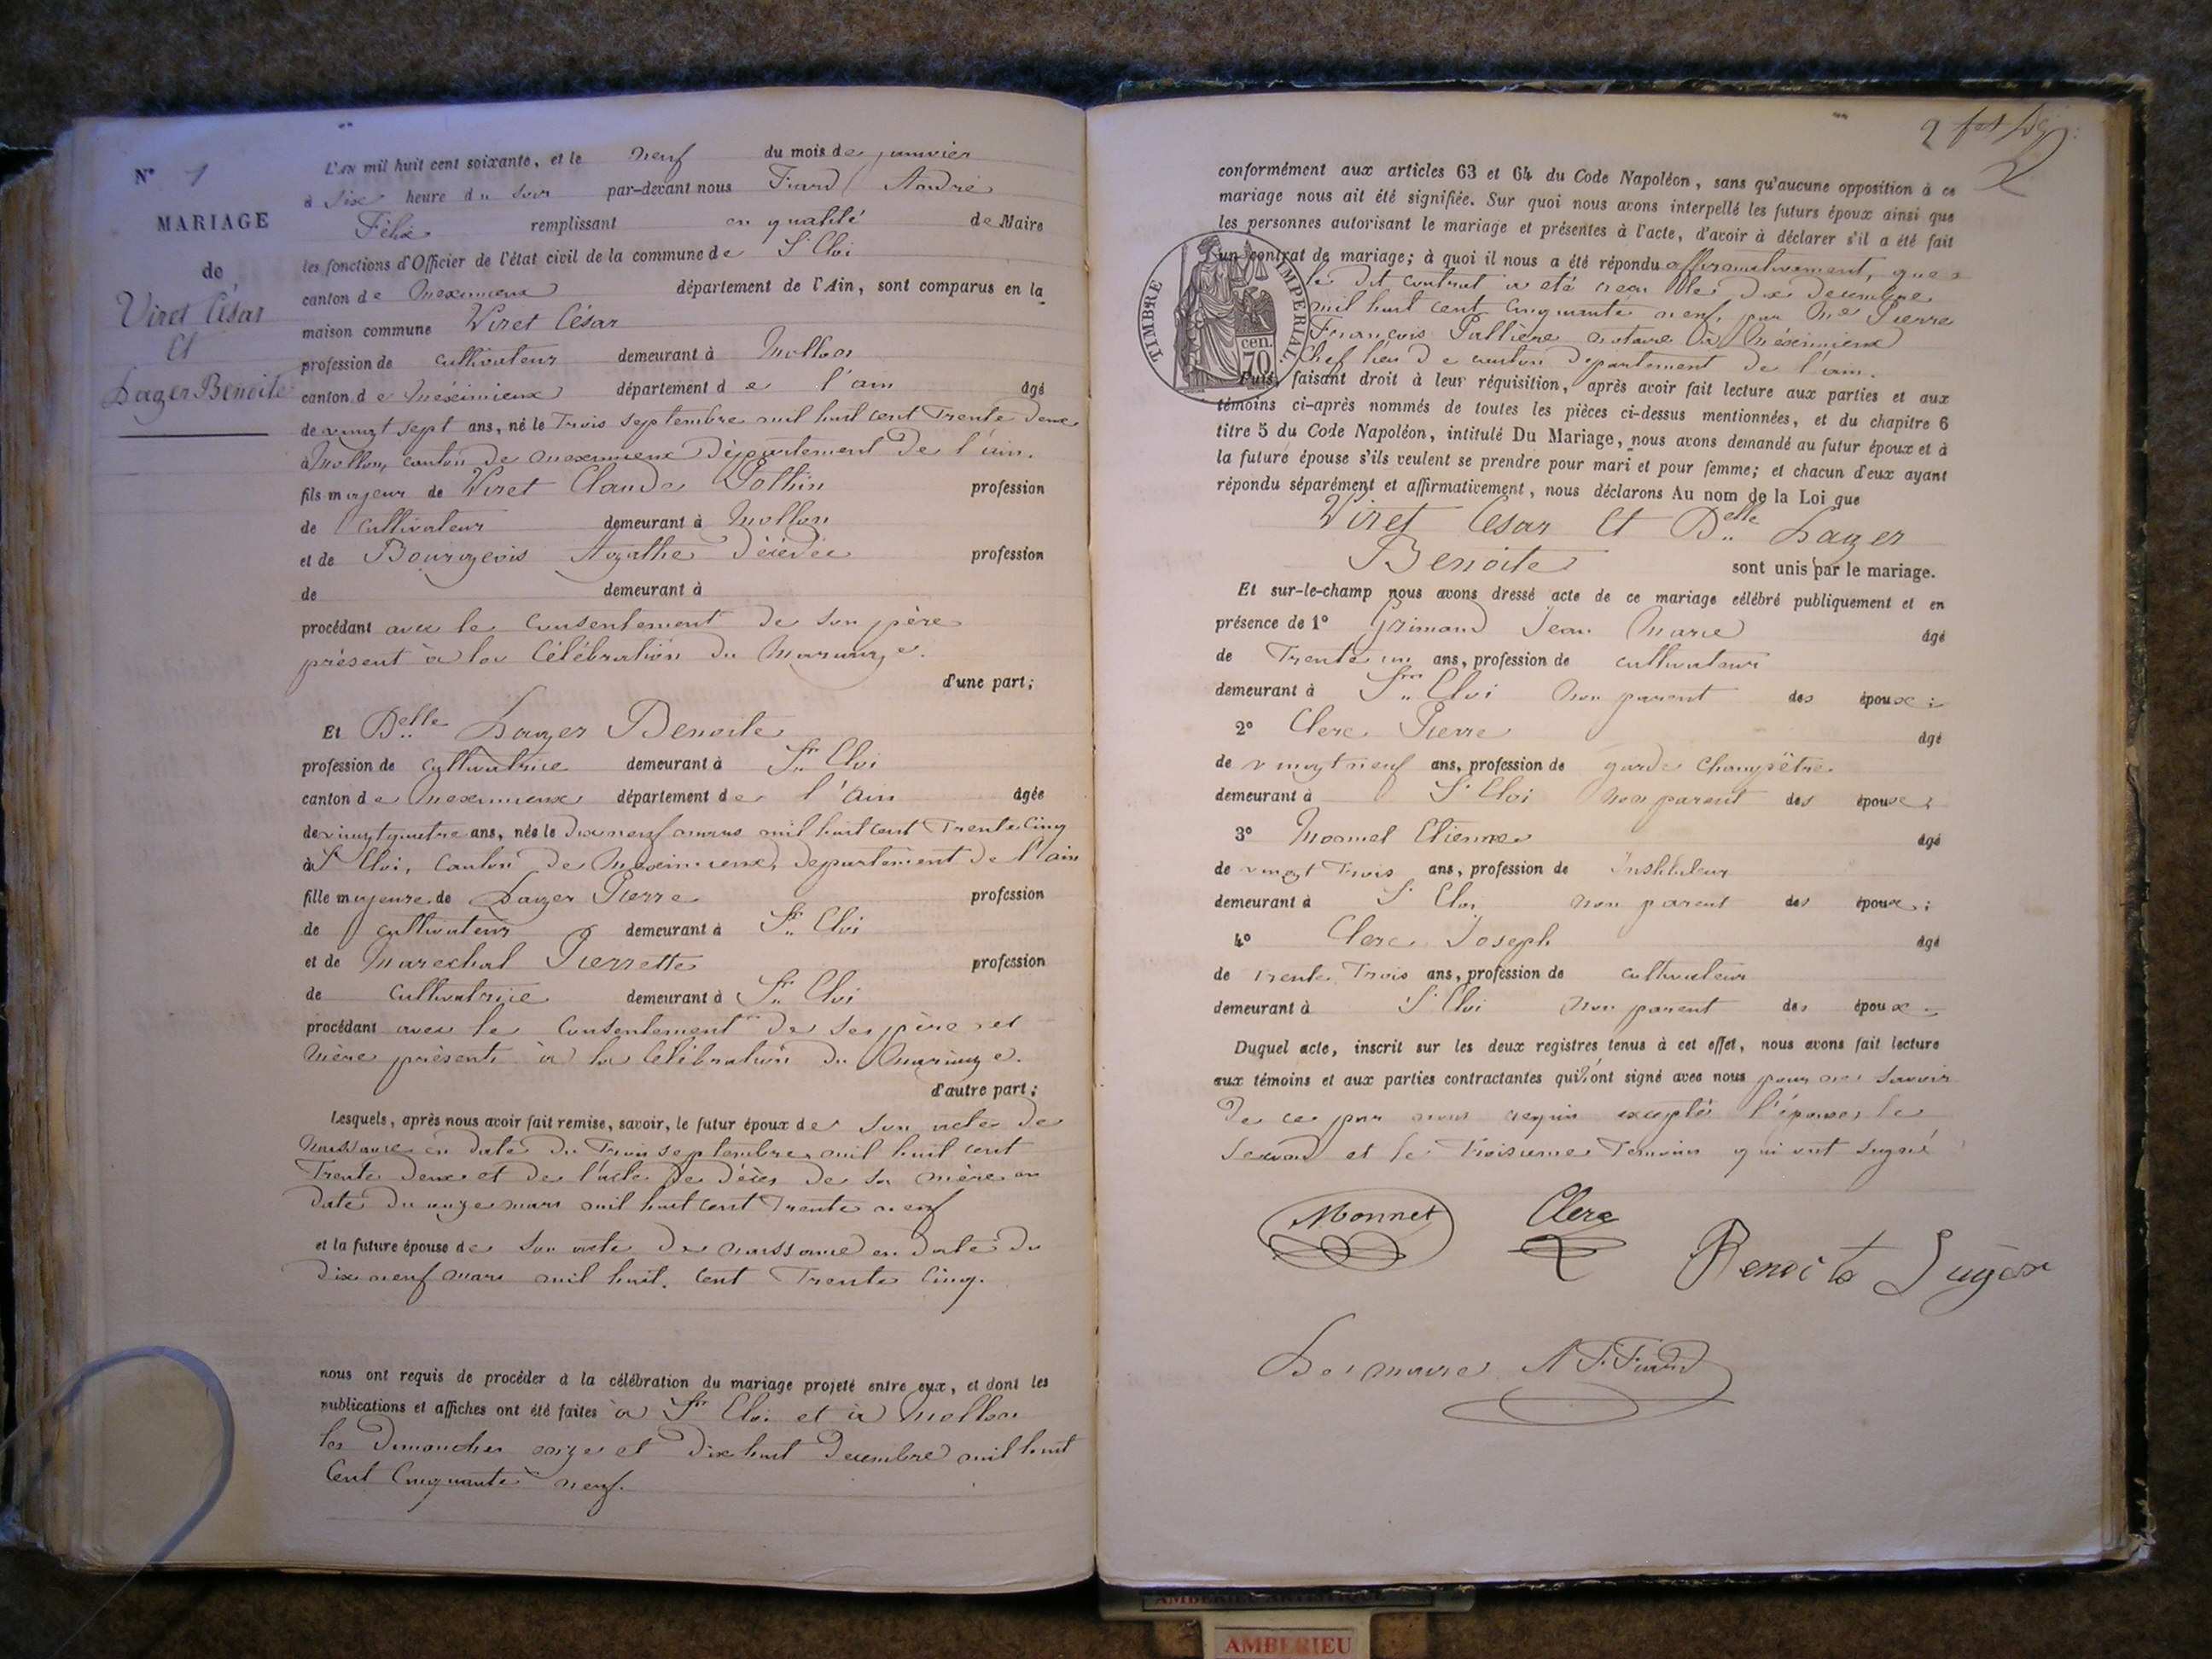 N° 1
MARIAGE
de
Viret César
Et
Lager Benoite
L'AN mil huit cent soixante, et le neuf du mois de janvier
à Six heure du Soir par-devant nous Fiard André
Félix remplissant en qualité de Maire
les fonctions d'Officier de l'état civil de la commune de St Eloi
canton de Meximieux département de l'Ain, sont comparus en la
maison commune Viret César
profession de cultivateur demeurant à Mollon
canton de Méximieux département de l'ain âgé
de vingt sept ans, né le Trois septembre mil huit cent Trente deux
à Mollon, canton de Meximieux Département De l'ain.
fils majeur de Viret Claude
profession
de Cultivateur demeurant à Mollon
et de Bourgeois Agathe Décédée profession
de demeurant à
procédant avec le Consentement de Son père
présent à la Célébration du Mariage.
d'une part;
Et Delle Lager Benoite
profession de cultivatrice demeurant à St Eloi
canton de Meximieux département de l'Ain âgée
de vingt quatre ans, née le Dix neuf mars mil huit cent Trente Cinq
à St Eloi, Canton de Meximieux, département de l'ain
fille majeure de Lager Pierre profession
de Cultivateur demeurant à St Eloi
et de Marechal Pierrette profession
de Cultivatrice demeurant à St Eloi
procédant avec le Consentement de Ses père et
Mère présents à la Célébration du Mariage.
d'autre part;
Lesquels, après nous avoir fait remise, savoir, le futur époux de Son acte de
Naissance en date du Trois septembre mil huit cent
Trente Deux et de l'acte de décès de Sa mère en
date du onze mars mil huit cent Trente neuf
et la future épouse de Son acte De naissance en date du
Dix neuf mars mil huit. Cent Trente Cinq.
nous ont requis de procéder à la célébration du mariage projeté entre eux, et dont les
publications et affiches ont été faites à St Eloi et à Mollon
les Dimanches onze et Dix huit Décembre mil huit
Cent Cinquante neuf.
2
conformément aux articles 63 et 64 du Code Napoléon, sans qu'aucune opposition à ce
mariage nous ait été signifiée. Sur quoi nous avons interpellé les futurs époux ainsi que
les personnes autorisant le mariage et présentes à l'acte, d'avoir à déclarer s'il a été fait
un contrat de mariage; à quoi il nous a été répondu affirmativement, que
le dit contrat a été reçu le dix Décembre
mil huit cent Cinquante neuf, par Me Pierre
François notaire à Méximieux
Chef lieu de canton département de l'ain.
TIMBRE IMPERIAL.
70 cen.
Puis, faisant droit à leur réquisition, après avoir fait lecture aux parties et aux
témoins ci-après nommés de toutes les pièces ci-dessus mentionnées, et du chapitre 6
titre 5 du Code Napoléon, intitulé Du Mariage, nous avons demandé au futur époux et à
la future épouse s'ils veulent se prendre pour mari et pour femme; et chacun d'eux ayant
répondu séparément et affirmativement, nous déclarons Au nom de la Loi que
Viret César Et Delle Lager
Benoite sont unis par le mariage.
Et sur-le-champ nous avons dressé acte de ce mariage célébré publiquement et en
présence de 1° Grimand Jean Marie âgé
de Trente un ans, profession de cultivateur
demeurant à St Eloi non parent des époux;
2° Clerc Pierre âgé
de vingt neuf ans, profession de garde Champêtre
demeurant à St Eloi non parent des époux;
3° Monnet Etienne âgé
de vingt Trois ans, profession de Instituteur
demeurant à St Eloi non parent des époux;
4° Clerc Joseph âgé
de Trente Trois ans, profession de cultivateur
demeurant à St Eloi non parent des époux.
Duquel acte, inscrit sur les deux registres tenus à cet effet, nous avons fait lecture
aux témoins et aux parties contractantes qui n'ont signé avec nous pour ne savoir
De ce par nous requis excepté l'épouse, le
Second et le Troisième Témoins qui ont signé
Monnet Clerc
Benoite Lager
Le maire A F Fiard
AMBERIEU ARTISTIQUE
AMBERIEU